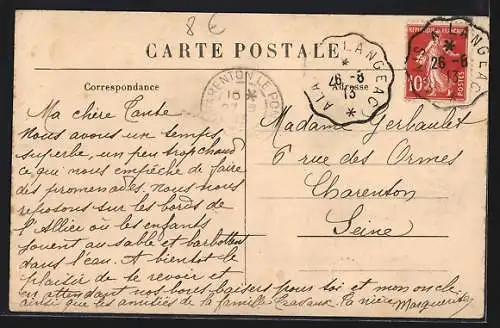 8 €
CARTE POSTALE
Correspondance
Adresse
ALANGEAC
26-8
13
ALA
CHARENTON LE PO
REPUBLIQUE FRANÇAISE
10
POSTES
LANGEAC
26-8
13
Ma chère Tante
Nous avons un temps
superbe, un peu trop chaud
ce qui nous empêche de faire
des promenades. Nous nous
reposons sur les bords de
l'Allier où les enfants
jouent au sable et barbottent
dans l'eau. A bientôt le
plaisir de te revoir et
en attendant nos bons baisers pour toi et mon oncle
ainsi que les amitiés de la famille. Ta nièce Marguerite
Madame Gerbault
6 rue des Ormes
Charenton
Seine